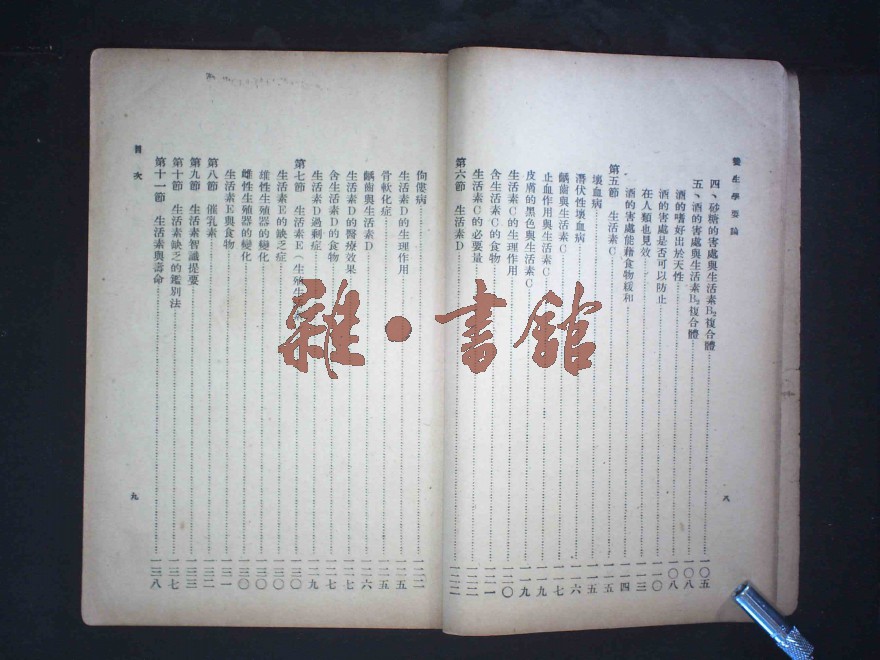 養生學要論
四、砂糖的害處與生活素B₂複合體……一〇五
五、酒的害處與生活素B₂複合體……一〇八
酒的嗜好出於天性……一〇八
酒的害處是否可以防止……一一〇
在人類也見效……一一三
酒的害處能藉食物緩和……一一四
第五節 生活素C……一一五
壞血病……一一五
潛伏性壞血病……一一六
齲齒與生活素C……一一七
止血作用與生活素C……一一九
皮膚的黑色與生活素C……一一九
生活素C的生理作用……一二〇
含生活素C的食物……一二一
生活素C的必要量……一二二
第六節 生活素D……一二二
八
佝僂病……一二二
生活素D的生理作用……一二五
骨軟化症……一二五
齲齒與生活素D……一二六
生活素D的醫療效果……一二七
含生活素D的食物……一二七
生活素D過剩症……一二九
第七節 生活素E（生殖生……一三〇
生活素E的缺乏症……一三〇
雄性生殖器的變化……一三〇
雌性生殖器的變化……一三〇
生活素E與食物……一三一
第八節 催乳素……一三二
第九節 生活素智識提要……一三三
第十節 生活素缺乏的鑑別法……一三七
第十一節 生活素與壽命……一三八
目次
九
雜·書館